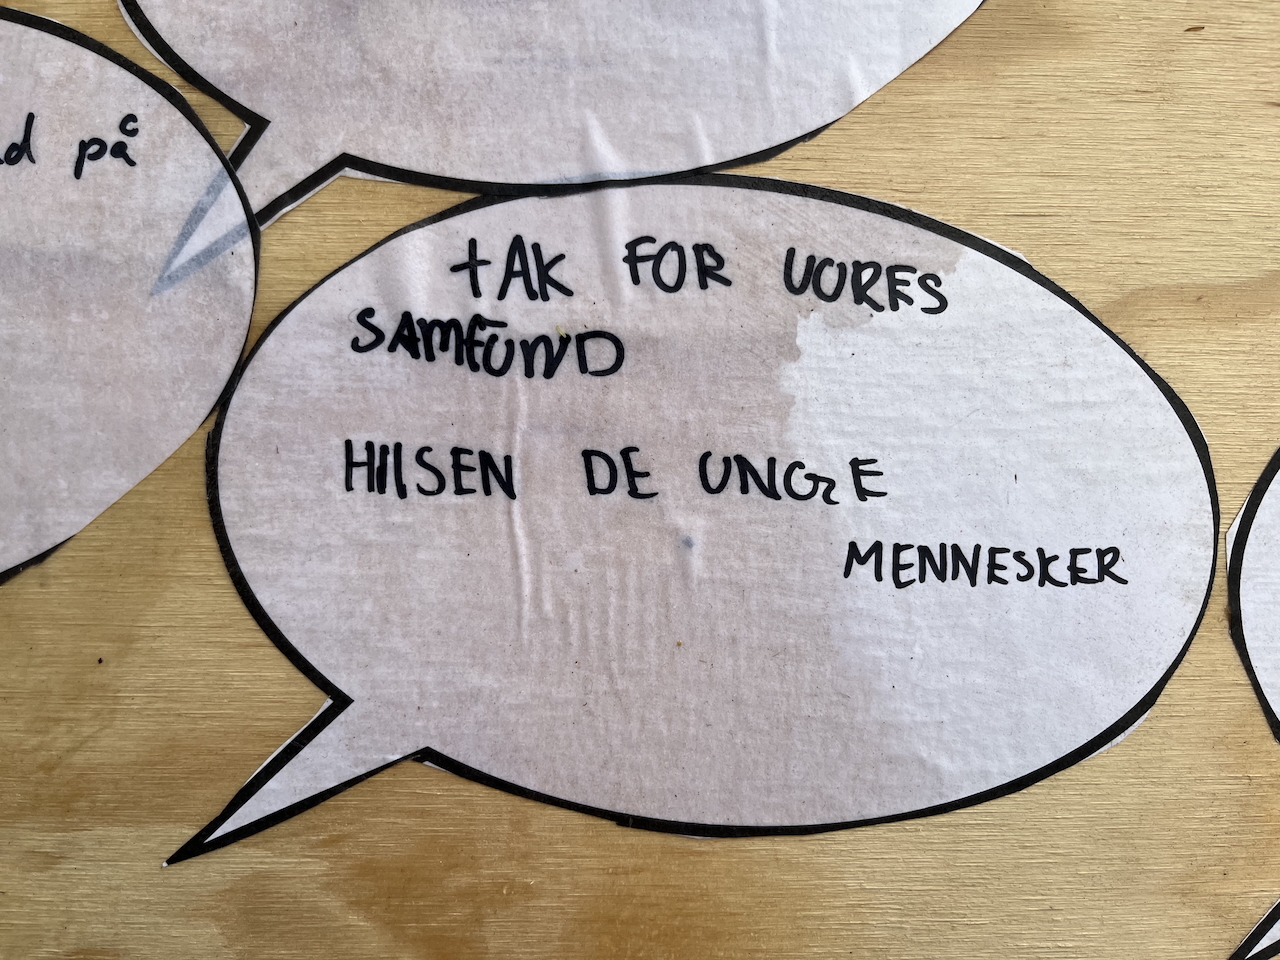 på
tAK FOR VORES
SAMFUND
HIlSEN DE UNGE
MENNESKER